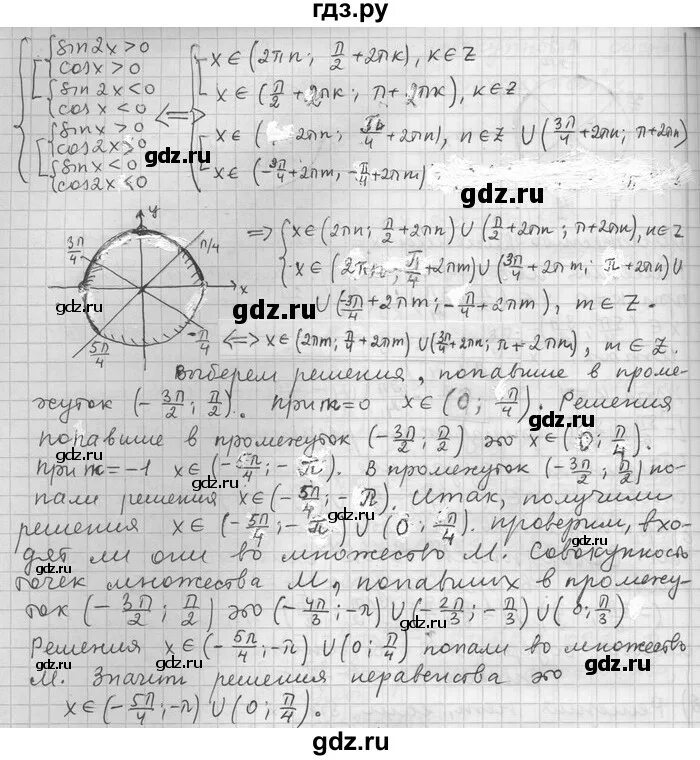 гдз.ру
sin2x>0
cosx>0
sin2x<0
cosx<0
sinx>0
cos2x>0
sinx<0
cos2x<0
⇔
x∈(2πn; π/2+2πk), k∈Z
x∈(π/2+2πk; π+2πk), k∈Z
x∈( 2πn; π/4+2πn), n∈Z ∪(3π/4+2πn; π+2πn)
x∈(-3π/4+2πm, -π/4+2πm)
gdz.ru
y
3π/4
π/4
x
5π/4
-π/4
⇒ x∈(2πn; π/2+2πn)∪(π/2+2πn; π+2πn), n∈Z
x∈(2πn; π/4+2πm)∪(3π/4+2πm; π+2πn)∪
∪(-3π/4+2πm; -π/4+2πm), m∈Z.
⇔ x∈(2πm; π/4+2πm)∪(3π/4+2πn; π+2πm), m∈Z.
Выберем решения, попавшие в проме-
жуток (-3π/2; π/2). При m=0 x∈(0; π/4). Решения
попавшие в промежуток (-3π/2; π/2) это x∈(0; π/4).
При m=-1 x∈(-5π/4; -π). В промежуток (-3π/2; π/2) по-
пали решения x∈(-5π/4; -π). Итак, получили
решения x∈(-5π/4; -π)∪(0; π/4). проверим, вхо-
дят ли они во множество М. Совокупность
точек множества М, попавших в промежу-
ток (-3π/2; π/2) это (-4π/3; -π)∪(-2π/3; -π/3)∪(0; π/3)
Решения x∈(-5π/4; -π)∪(0; π/4) попали во множество
М. Значит решения неравенства это
x∈(-5π/4; -π)∪(0; π/4).
gdz.ru